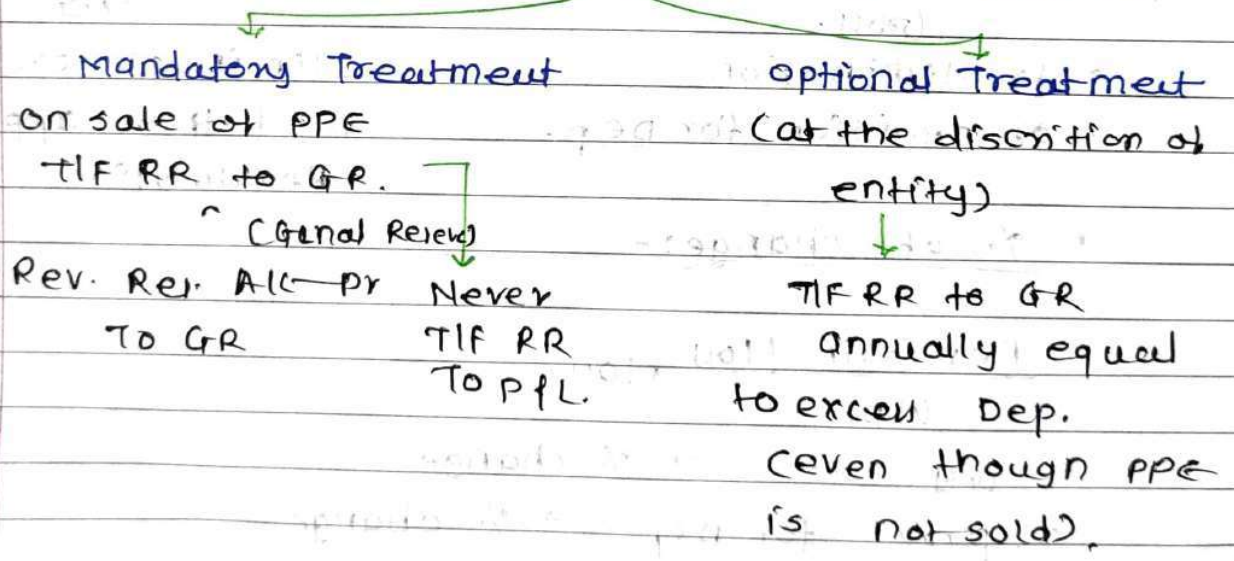 Mandatory Treatment
on sale of PPE
T/F RR to GR.
(Genal Reserve)
Rev. Res. A/c Dr
To GR
Never
T/F RR
To P&L.
optional Treatment
(at the discrition of
entity)
T/F RR to GR
annually equal
to excess Dep.
(even though PPE
is not sold).